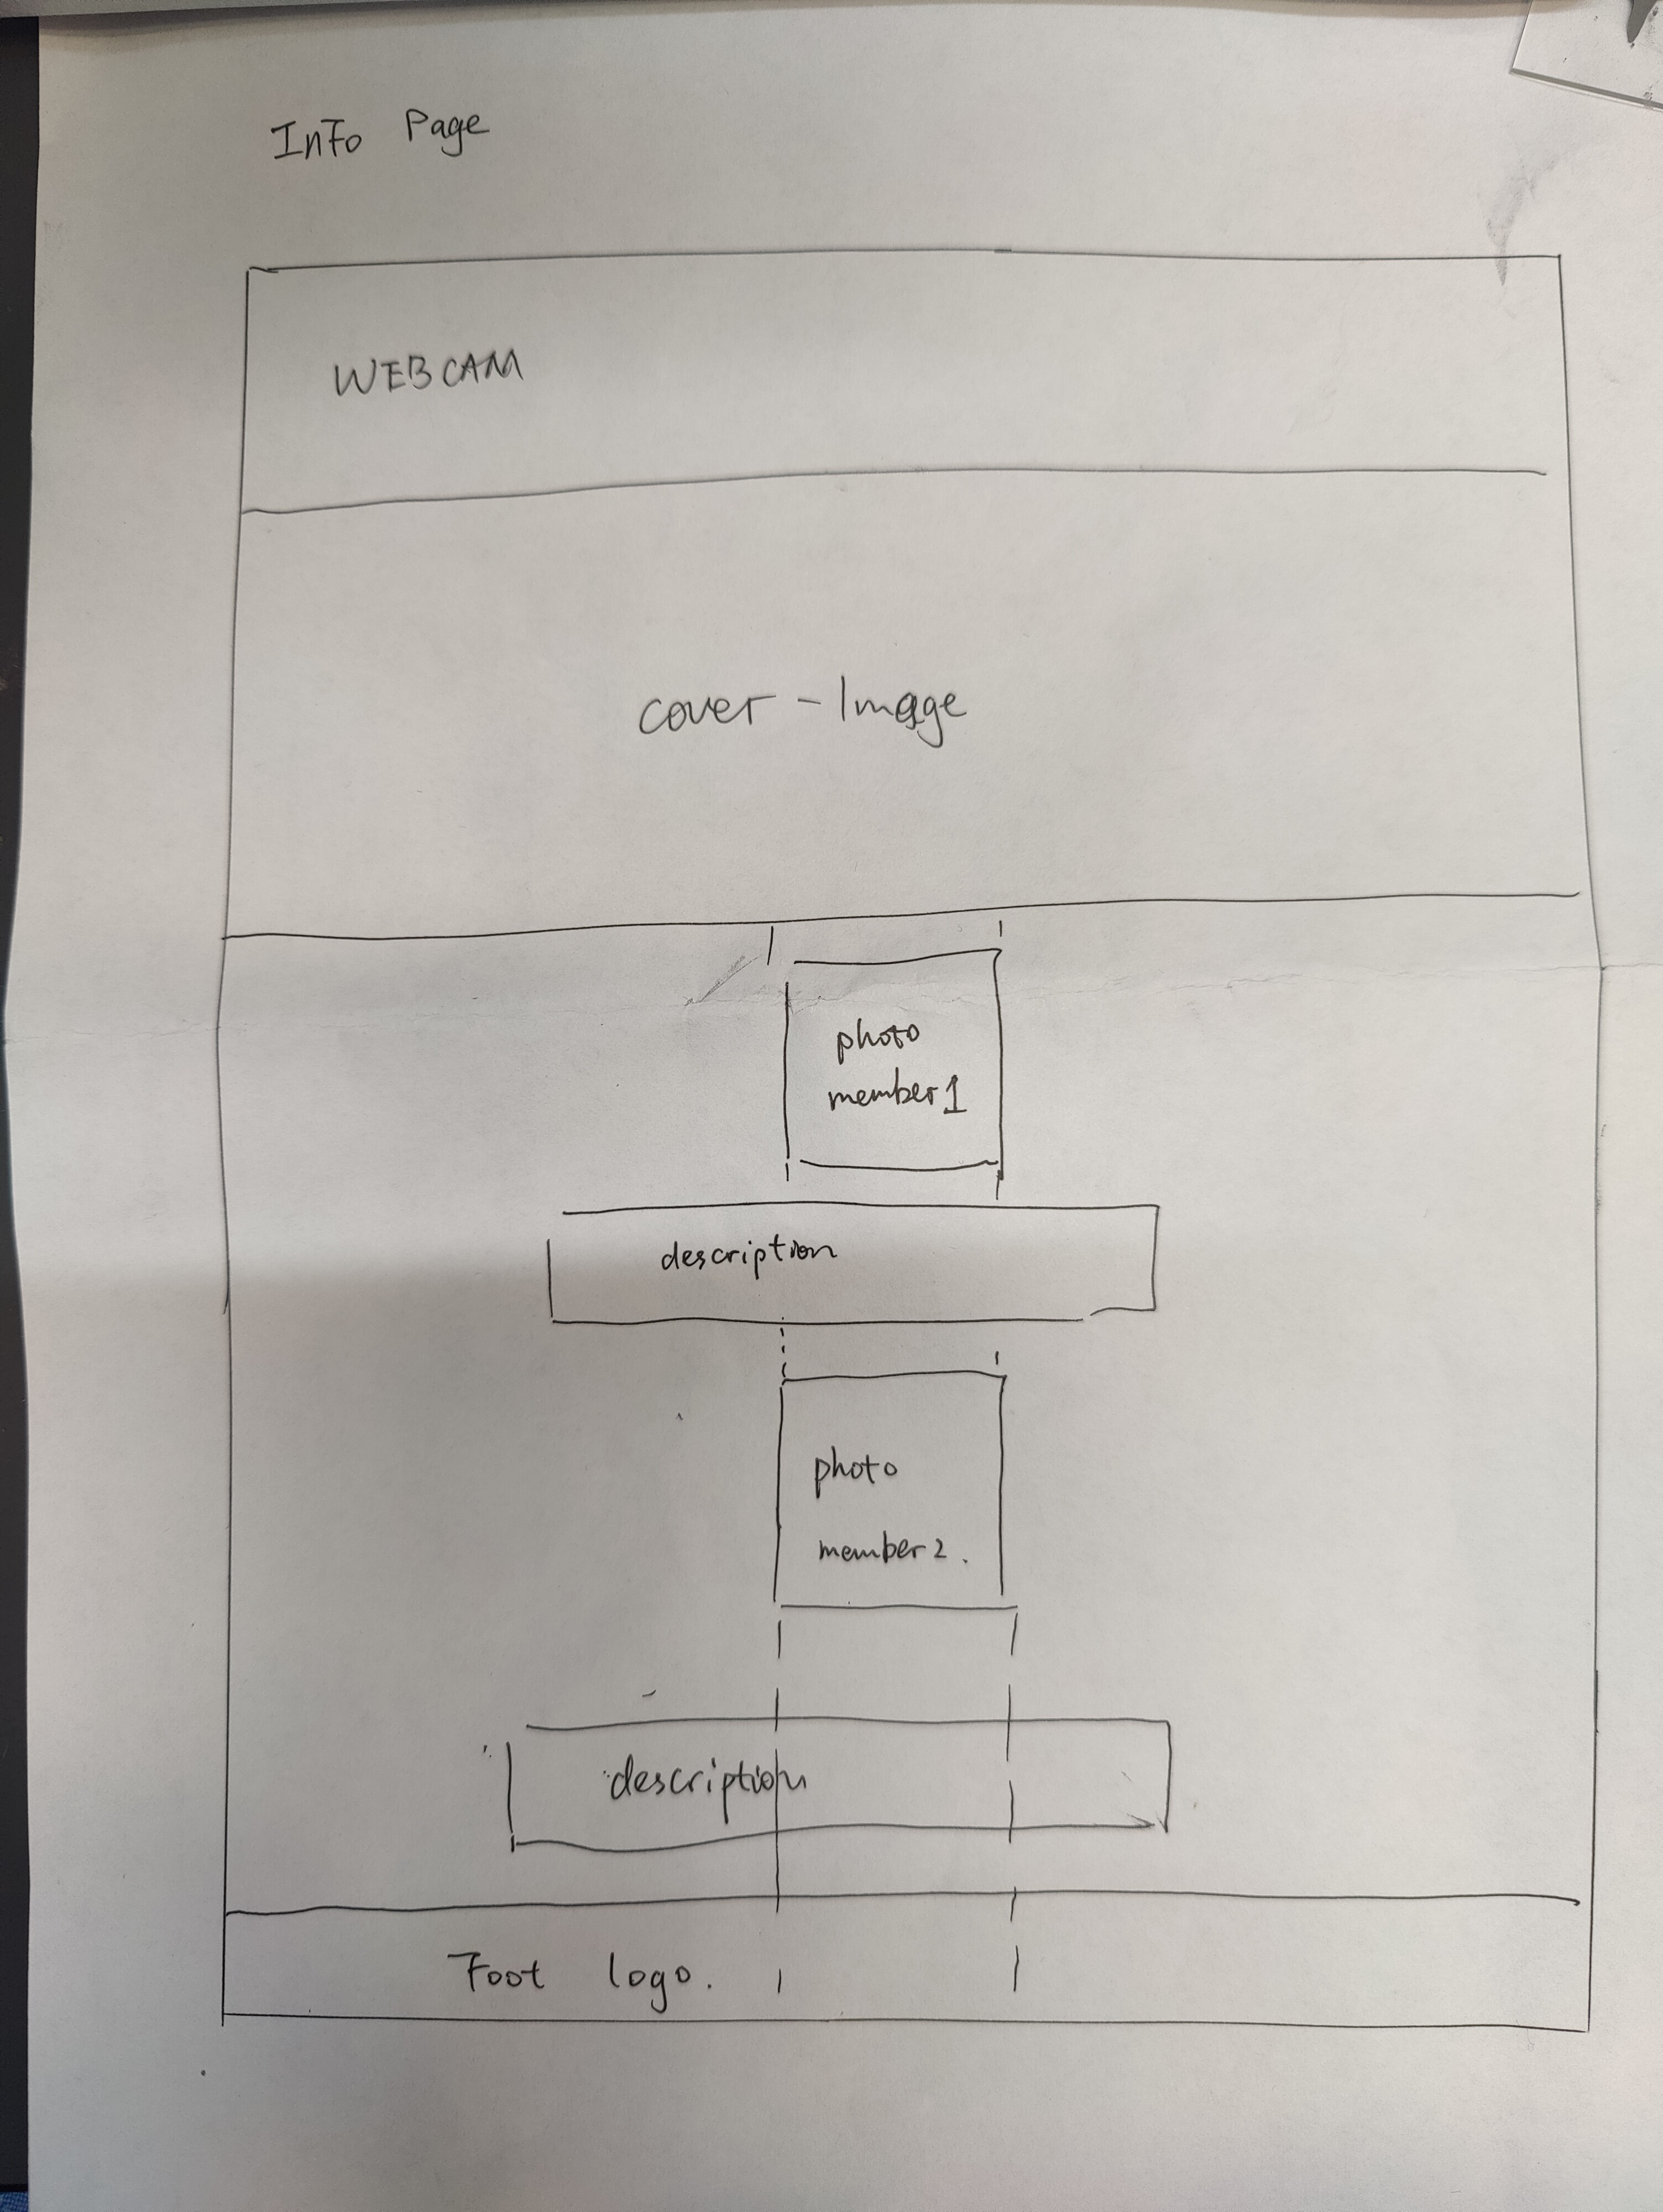 Info Page
WEBCAM
cover - Image
photo
member 1
description
photo
member 2.
description
Foot logo.